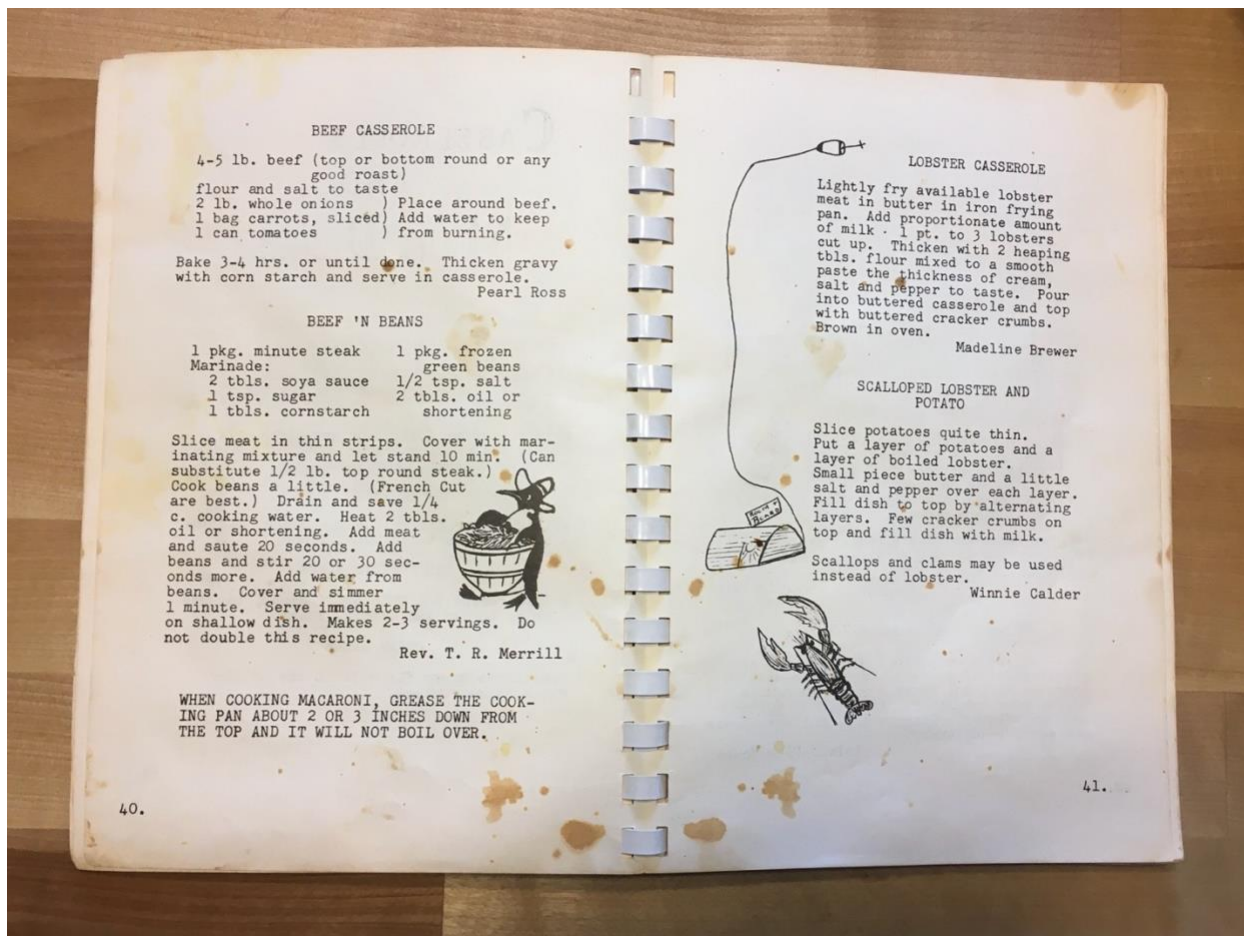 BEEF CASSEROLE
4-5 lb. beef (top or bottom round or any
good roast)
flour and salt to taste
2 lb. whole onions ) Place around beef.
1 bag carrots, sliced) Add water to keep
1 can tomatoes ) from burning.
Bake 3-4 hrs. or until done. Thicken gravy
with corn starch and serve in casserole.
Pearl Ross
BEEF 'N BEANS
1 pkg. minute steak 1 pkg. frozen
Marinade: green beans
2 tbls. soya sauce 1/2 tsp. salt
1 tsp. sugar 2 tbls. oil or
1 tbls. cornstarch shortening
Slice meat in thin strips. Cover with mar-
inating mixture and let stand 10 min. (Can
substitute 1/2 lb. top round steak.)
Cook beans a little. (French Cut
are best.) Drain and save 1/4
c. cooking water. Heat 2 tbls.
oil or shortening. Add meat
and saute 20 seconds. Add
beans and stir 20 or 30 sec-
onds more. Add water from
beans. Cover and simmer
1 minute. Serve immediately
on shallow dish. Makes 2-3 servings. Do
not double this recipe.
Rev. T. R. Merrill
WHEN COOKING MACARONI, GREASE THE COOK-
ING PAN ABOUT 2 OR 3 INCHES DOWN FROM
THE TOP AND IT WILL NOT BOIL OVER.
40.
LOBSTER CASSEROLE
Lightly fry available lobster
meat in butter in iron frying
pan. Add proportionate amount
of milk - 1 pt. to 3 lobsters
cut up. Thicken with 2 heaping
tbls. flour mixed to a smooth
paste the thickness of cream,
salt and pepper to taste. Pour
into buttered casserole and top
with buttered cracker crumbs.
Brown in oven.
Madeline Brewer
SCALLOPED LOBSTER AND
POTATO
Slice potatoes quite thin.
Put a layer of potatoes and a
layer of boiled lobster.
Small piece butter and a little
salt and pepper over each layer.
Fill dish to top by alternating
layers. Few cracker crumbs on
top and fill dish with milk.
Scallops and clams may be used
instead of lobster.
Winnie Calder
41.